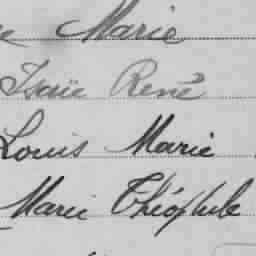 Marie
Isaïe René
Louis Marie
Marie Théophile